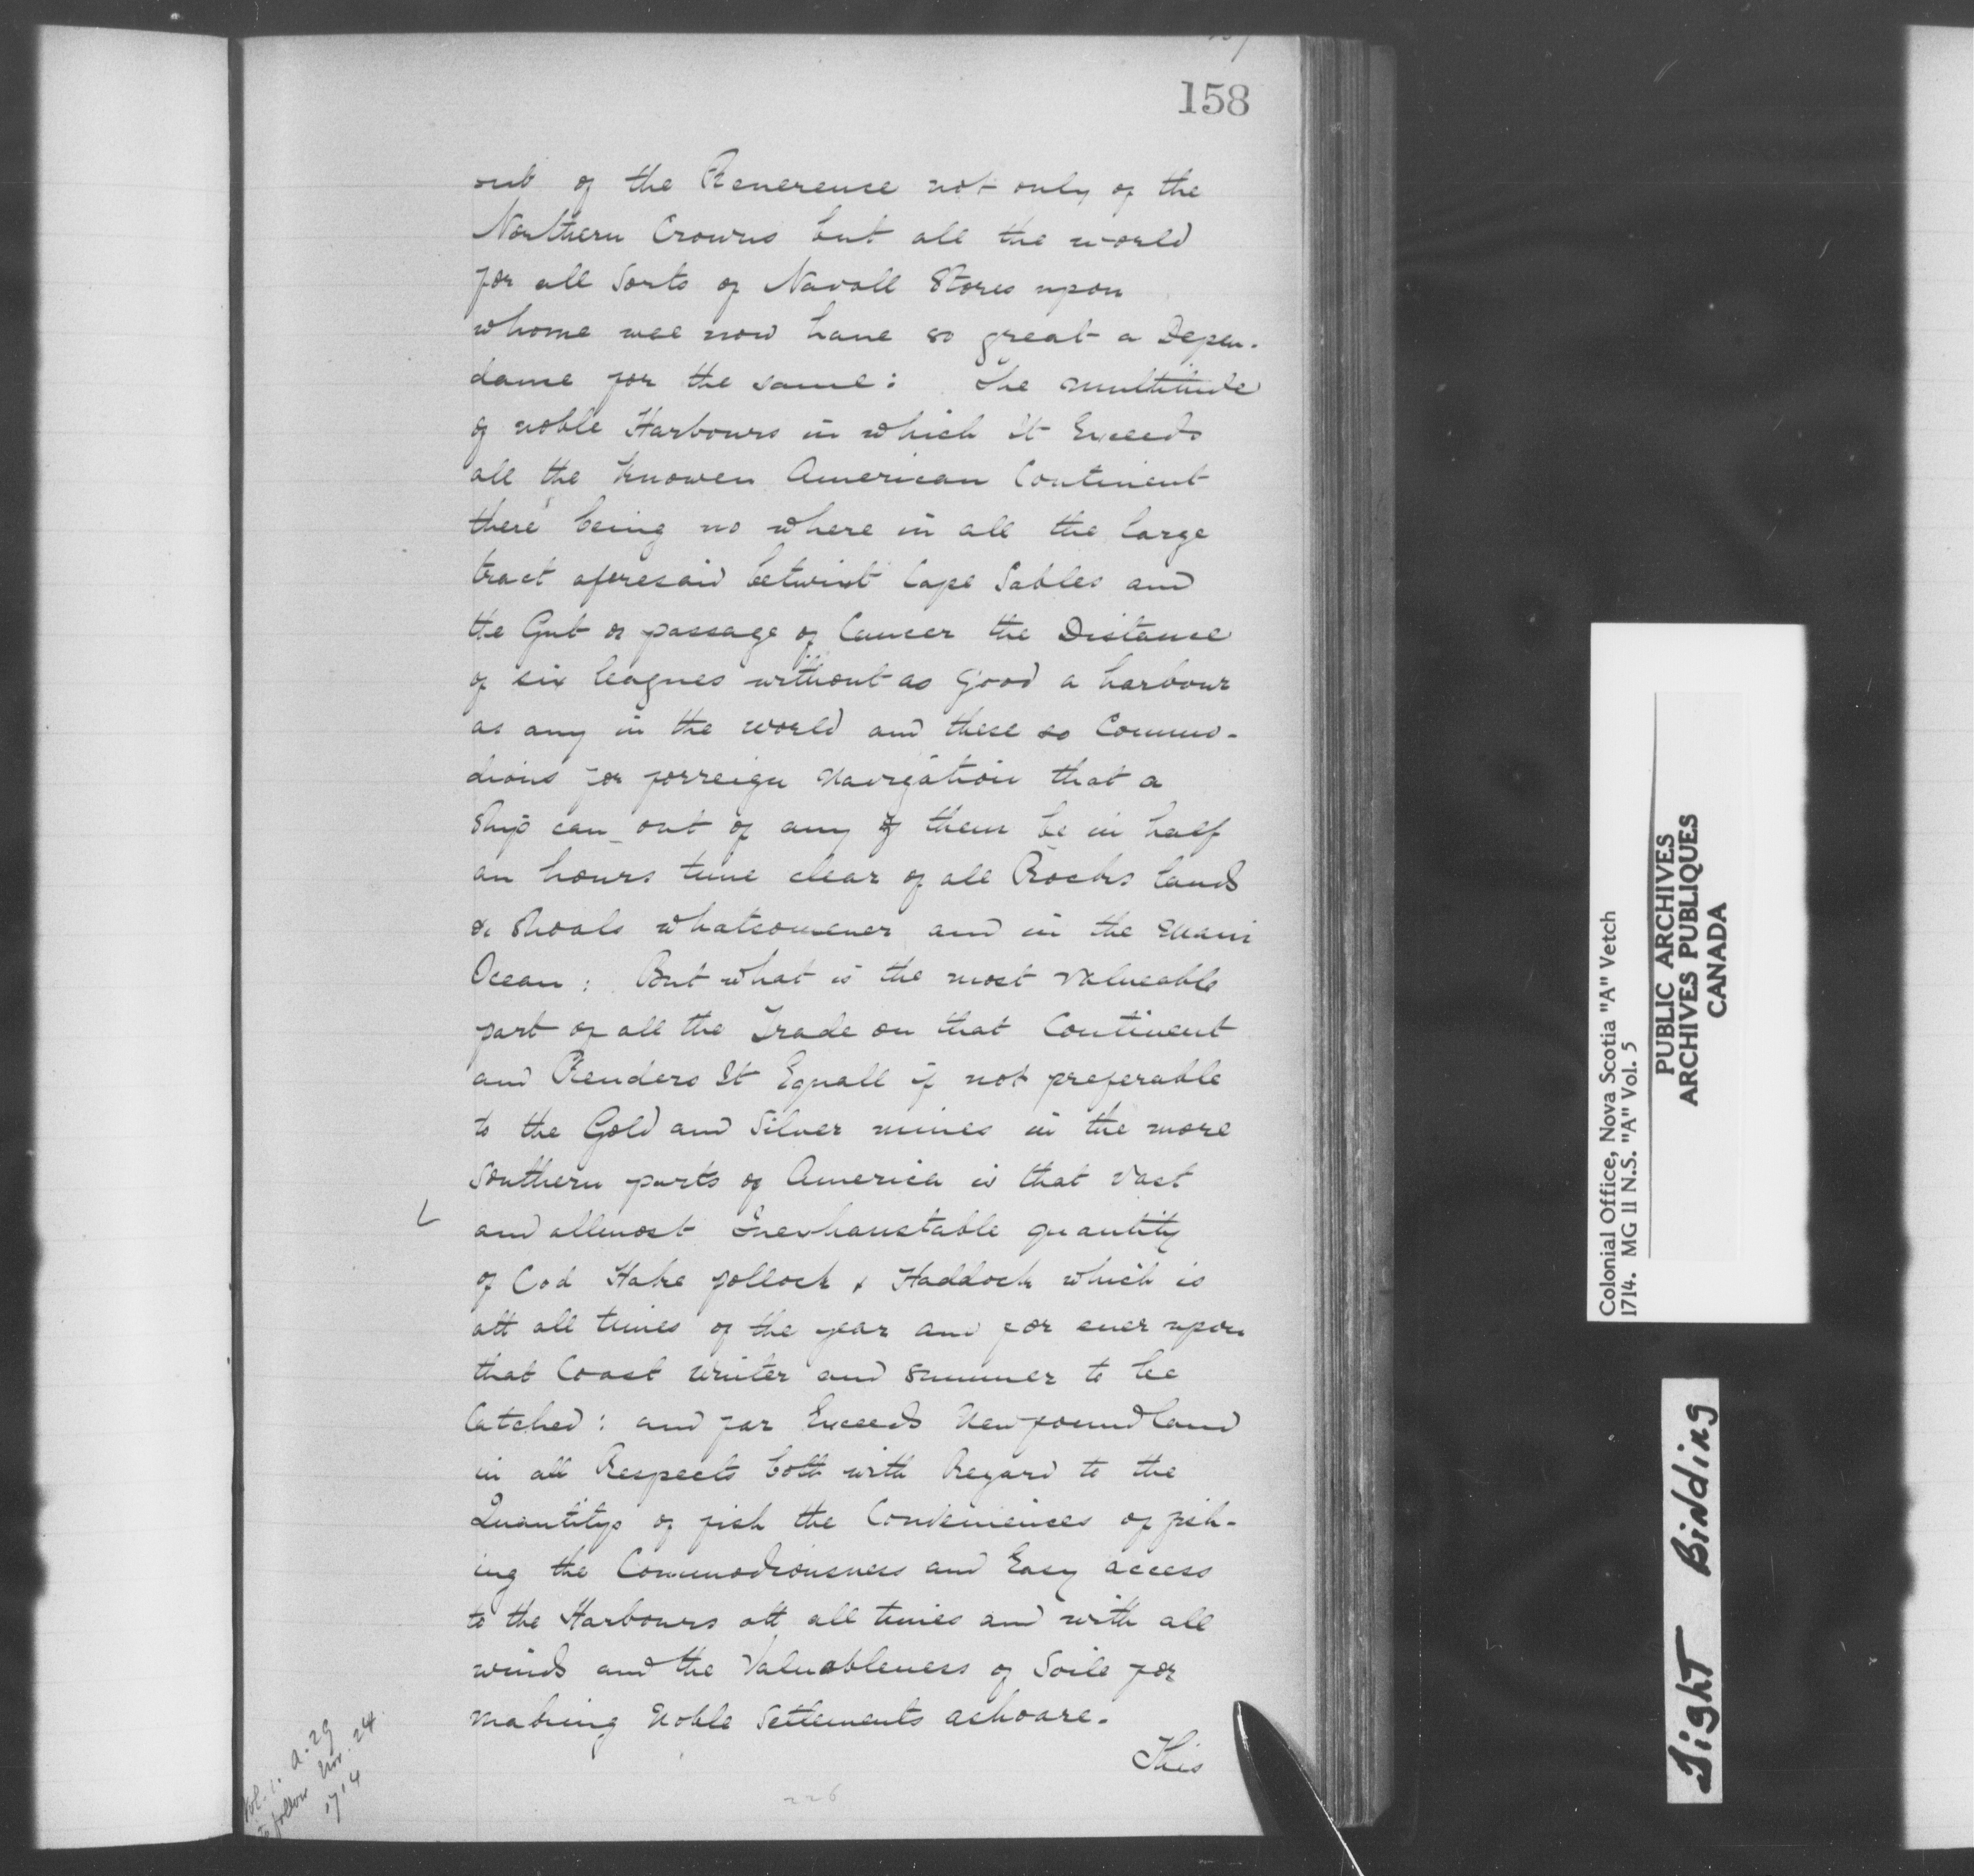 158
out of the Reverence not only of the
Northern Crowns but all the world
for all Sorts of Navall Stores upon
whome wee now have so great a Depen-
dance for the same: The multitude
of noble Harbours in which It Exceeds
all the knowen American Continent
there being no where in all the large
tract aforesaid betwixt Cape Sables and
the Gut or passage of Cancer the Distance
of six leagues without as Good a harbour
as any in the world and these so Commo-
dious for forreign Navigation that a
Ship can out of any of them be in half
an hours time clear of all Rocks lands
& Shoals whatsomever and in the Main
Ocean: But what is the most valueable
part of all the Trade on that Continent
and Renders It Equall if not preferable
to the Gold and Silver mines in the more
Southern parts of America is that vast
and allmost Inexhaustable quantity
of Cod Hake pollock & Haddock which is
att all times of the year and for ever upon
that Coast winter and summer to bee
Catched: and far Exceeds Newfoundland
in all Respects both with Regard to the
Quantitys of fish the Conveniences of fish-
ing the Commodiousness and Easy access
to the Harbours att all times and with all
winds and the Valuableness of Soile for
making Noble Settlements ashoare.
This
226
Vol. 1. a. 29
to follow Nov. 24.
1714
Colonial Office, Nova Scotia "A" Vetch
1714. MG 11 N.S. "A" Vol. 5
PUBLIC ARCHIVES
ARCHIVES PUBLIQUES
CANADA
Tight Binding